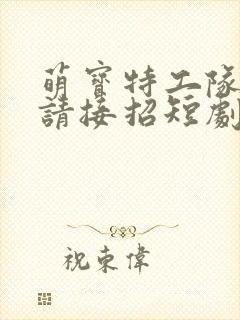 萌寶特工隊
請接招短劇
祝東偉